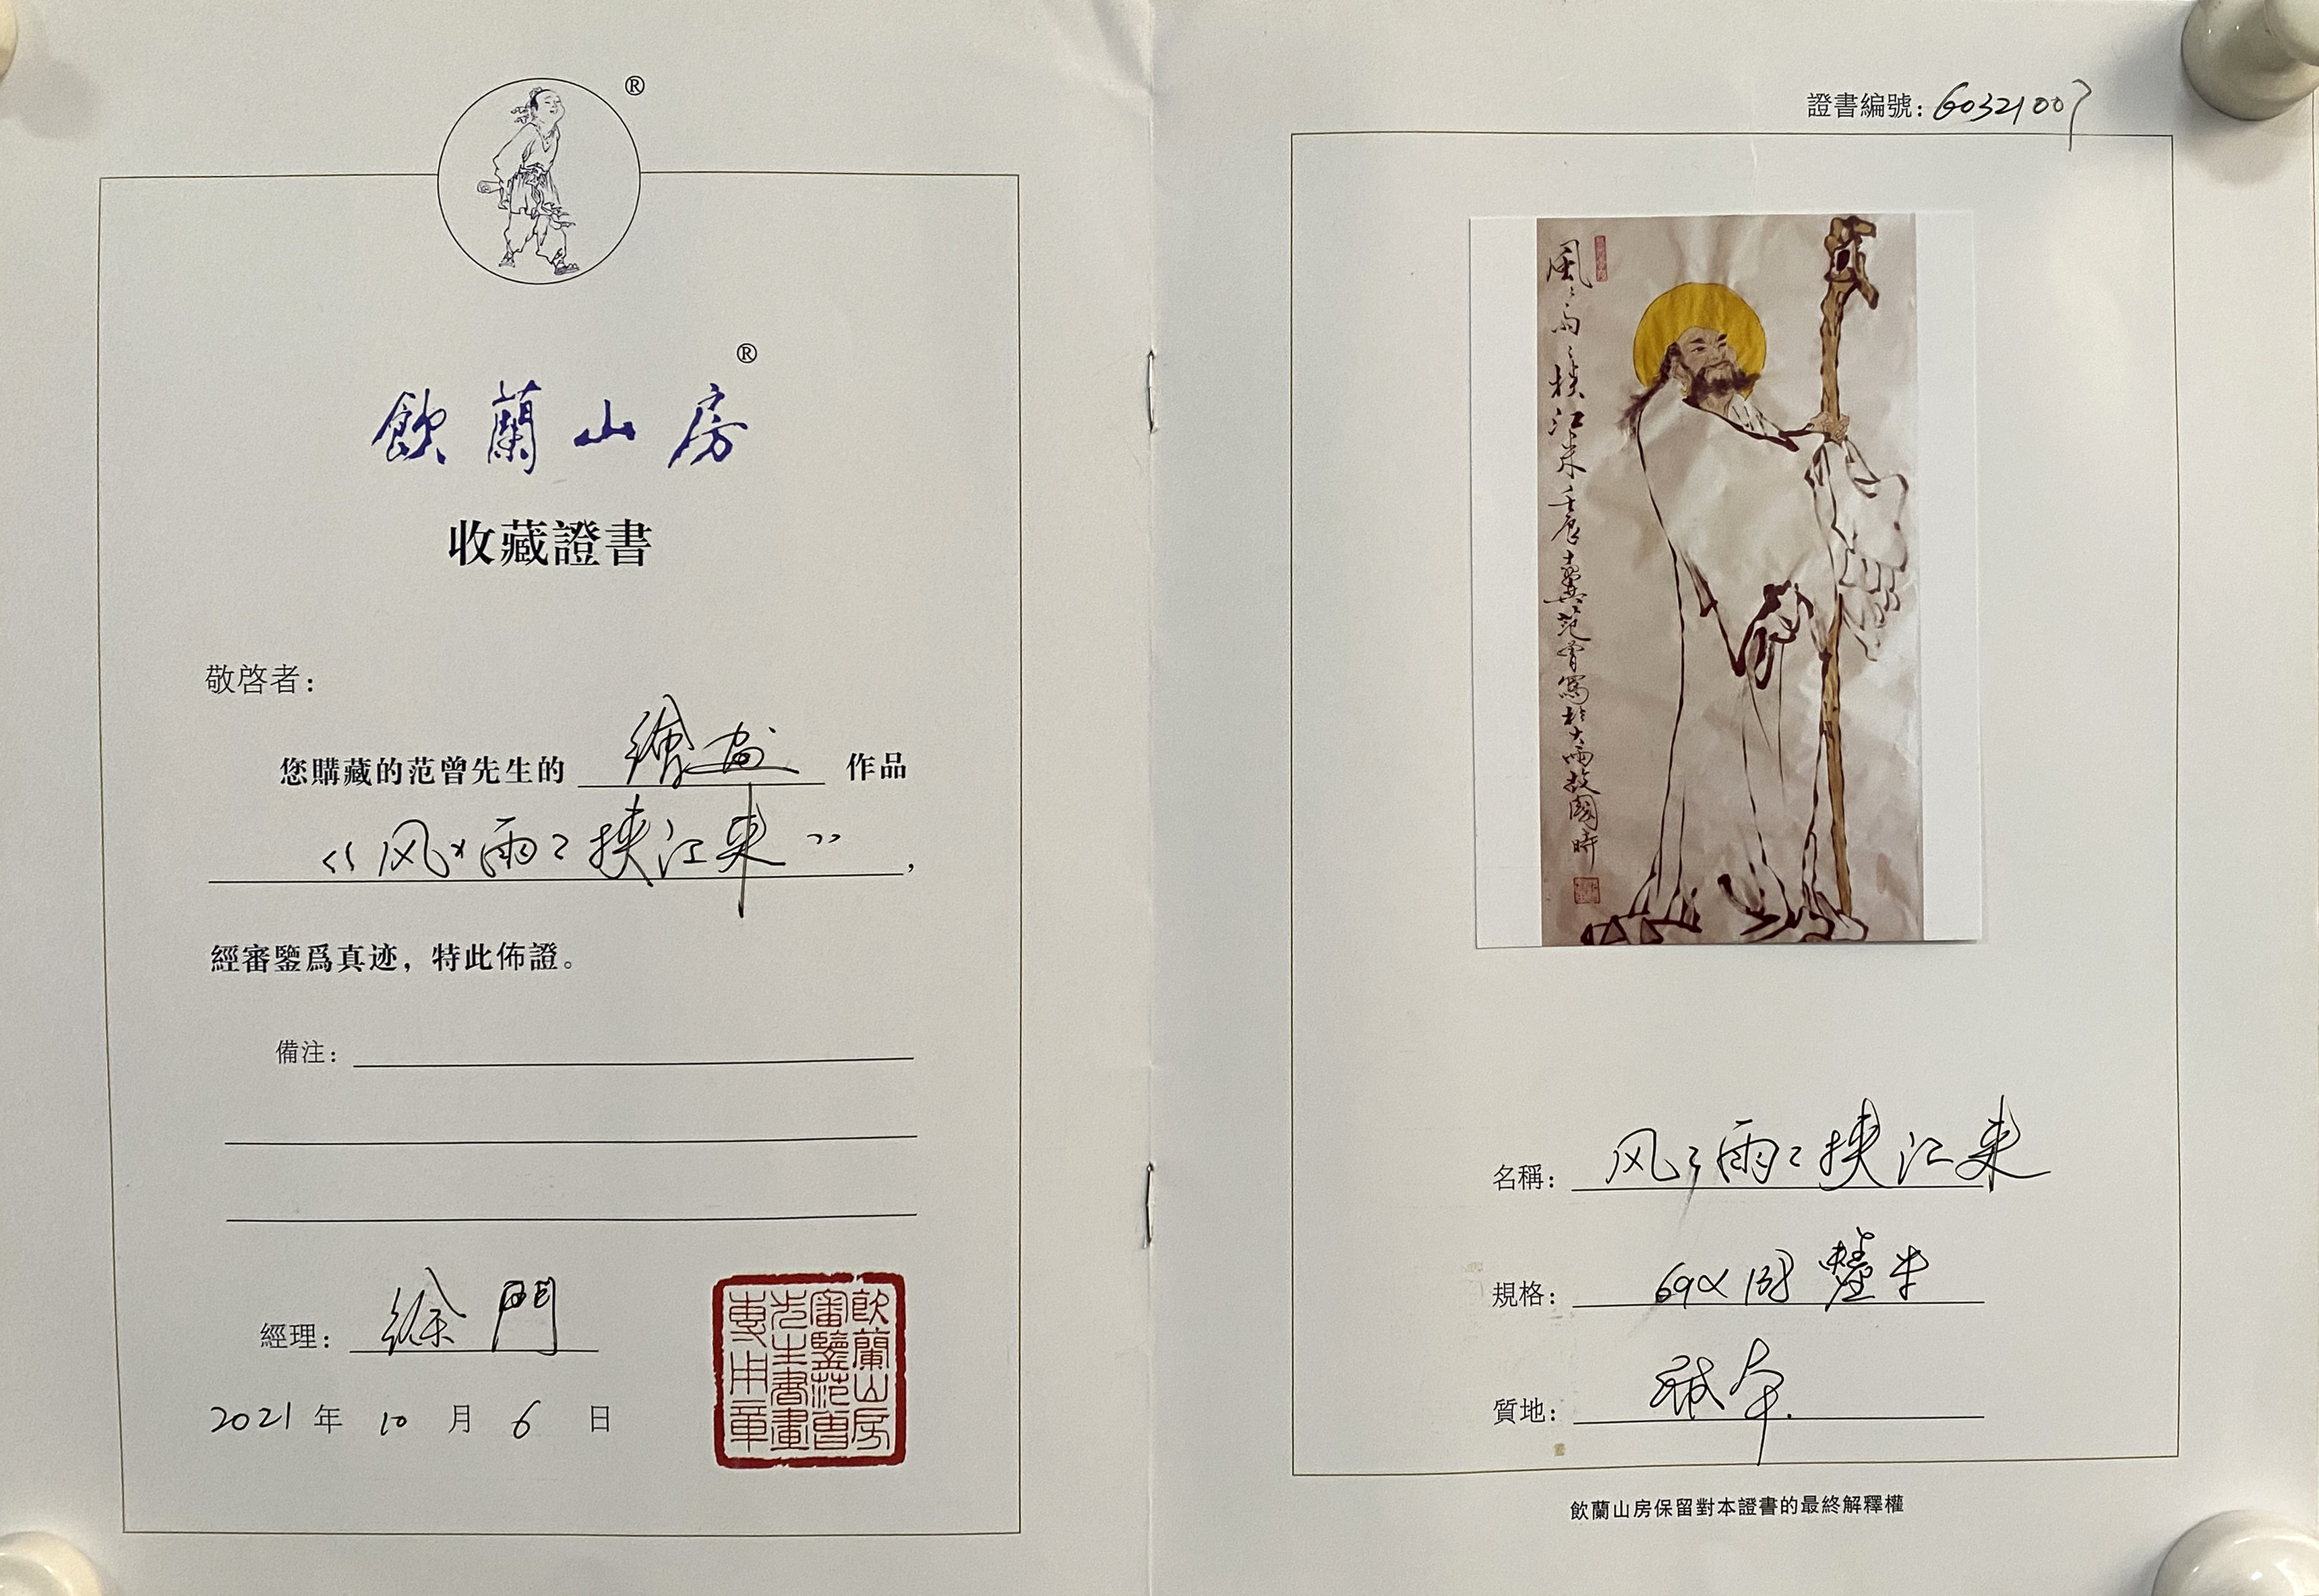 ®
飲蘭山房®
收藏證書
敬啓者:
您購藏的范曾先生的 繪畫 作品
《风々雨々挾江來》,
經審鑒爲真迹，特此佈證。
備注:
經理: 徐門
2021 年 10 月 6 日
飲蘭山房
審鑒范曾
先生書畫
專用章
證書編號: G0321007
風〻雨〻挾江來 壬辰 十翼范曾寫於大雨故國時
名稱: 风々雨々挾江來
規格: 69×138 整
質地: 紙本.
飲蘭山房保留對本證書的最終解釋權